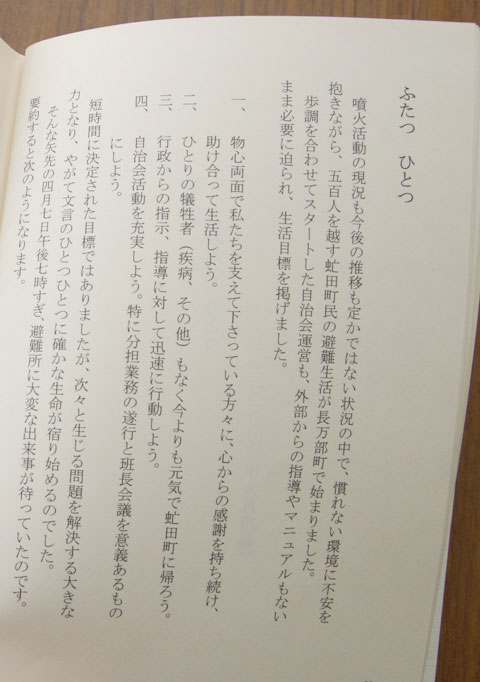 ふたつ　ひとつ
噴火活動の現況も今後の推移も定かではない状況の中で、慣れない環境に不安を
抱きながら、五百人を越す虻田町民の避難生活が長万部町で始まりました。
歩調を合わせてスタートした自治会運営も、外部からの指導やマニュアルもない
まま必要に迫られ、生活目標を掲げました。
一、物心両面で私たちを支えて下さっている方々に、心からの感謝を持ち続け、
助け合って生活しよう。
二、ひとりの犠牲者（疾病、その他）もなく今よりも元気で虻田町に帰ろう。
三、行政からの指示、指導に対して迅速に行動しよう。
四、自治会活動を充実しよう。特に分担業務の遂行と班長会議を意義あるもの
にしよう。
短時間に決定された目標ではありましたが、次々と生じる問題を解決する大きな
力となり、やがて文言のひとつひとつに確かな生命が宿り始めるのでした。
そんな矢先の四月七日午後七時すぎ、避難所に大変な出来事が待っていたのです。
要約すると次のようになります。